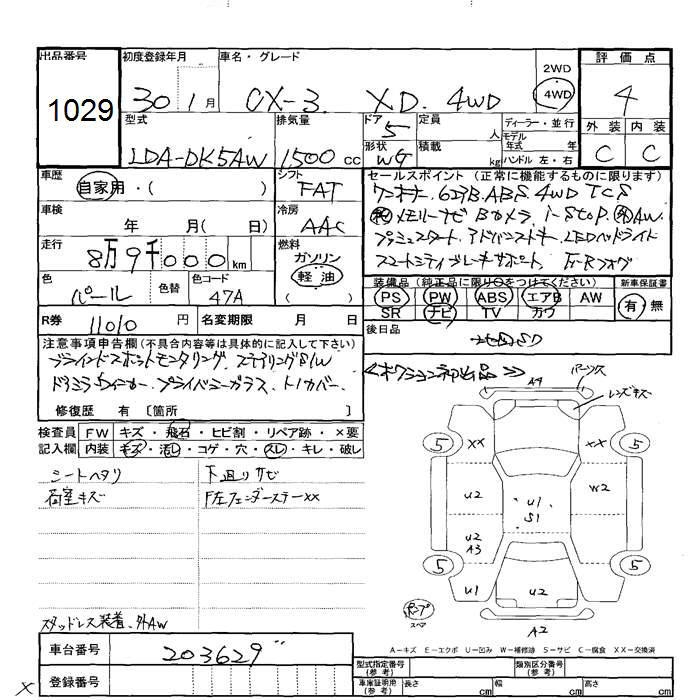 出品番号 初度登録年月 車名・グレード 2WD 4WD 評価点
1029 30 1月 CX-3 XD 4WD 4
型式 排気量 ドア 5 定員 人 ディーラー・並行 外装 内装
LDA-DK5AW 1500cc 形状 WG 積載 kg モデル年式 年 ハンドル 左・右 C C
車歴 シフト セールスポイント (正常に機能するものに限ります)
自家用・( ) FAT ワンオーナー、6エアB、ABS、4WD TCS
車検 冷房 メモリーナビ Bカメラ i-STOP AW
年 月( 日) AAC プッシュスタート、アドバンストキー、LEDヘッドライト
走行 燃料 スマートシティブレーキサポート、F・Rフォグ
8万9千000km ガソリン 軽油
色 パール 色替 色コード 47A
装備品 (純正品に限り○をつけてください) 新車保証書
PS PW ABS エアB AW 有 無
SR ナビ TV カワ
R券 11010円 名変期限 月 日
後日品 地図SD
注意事項申告欄(不具合内容等は具体的に記入して下さい)
ブラインドスポットモニタリング、ステアリングSW
ドラミラウインカー、プライバシーガラス、トノカバー
修復歴 有 〔箇所 〕
<<オークション初出品>>
検査員 FW キズ・飛石・ヒビ割・リペア跡・×要
記入欄 内装 キズ・汚レ・コゲ・穴・スレ・キレ・破レ
シートヘタリ 下廻りサビ
荷室キズ F左フェンダーステーXX
スタッドレス装着、外AW
A4 パーツス レンズキズ
5 XX XX 5
U2 U1 S1 W2
U2 A3
5 U1 U2 5
A2
パンプ スペア
A-キズ E-エクボ U-凹み W-補修跡 S-サビ C-腐食 XX-交換済
車台番号 203629
登録番号
型式指定番号(参考) 類別区分番号(参考)
車庫証明用(参考) 長さ cm 幅 cm 高さ cm
X